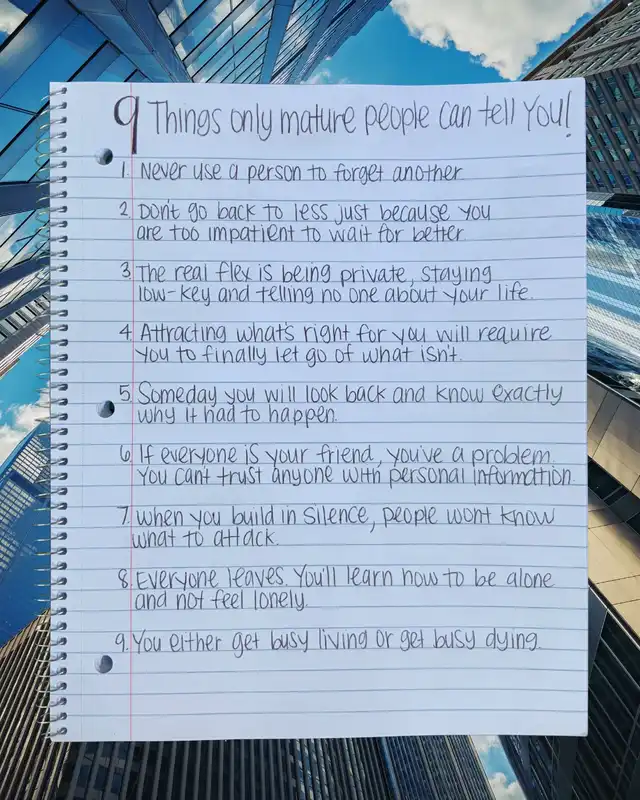 9 Things only mature people can tell You!
1. Never use a person to forget another.
2. Don't go back to less just because you
are too impatient to wait for better.
3. The real flex is being private, staying
low-key and telling no one about your life.
4. Attracting what's right for you will require
you to finally let go of what isn't.
5. Someday you will look back and know exactly
why it had to happen.
6. If everyone is your friend, you've a problem.
You can't trust anyone with personal information.
7. When you build in silence, people wont know
what to attack.
8. Everyone leaves. You'll learn how to be alone
and not feel lonely.
9. You either get busy living or get busy dying.